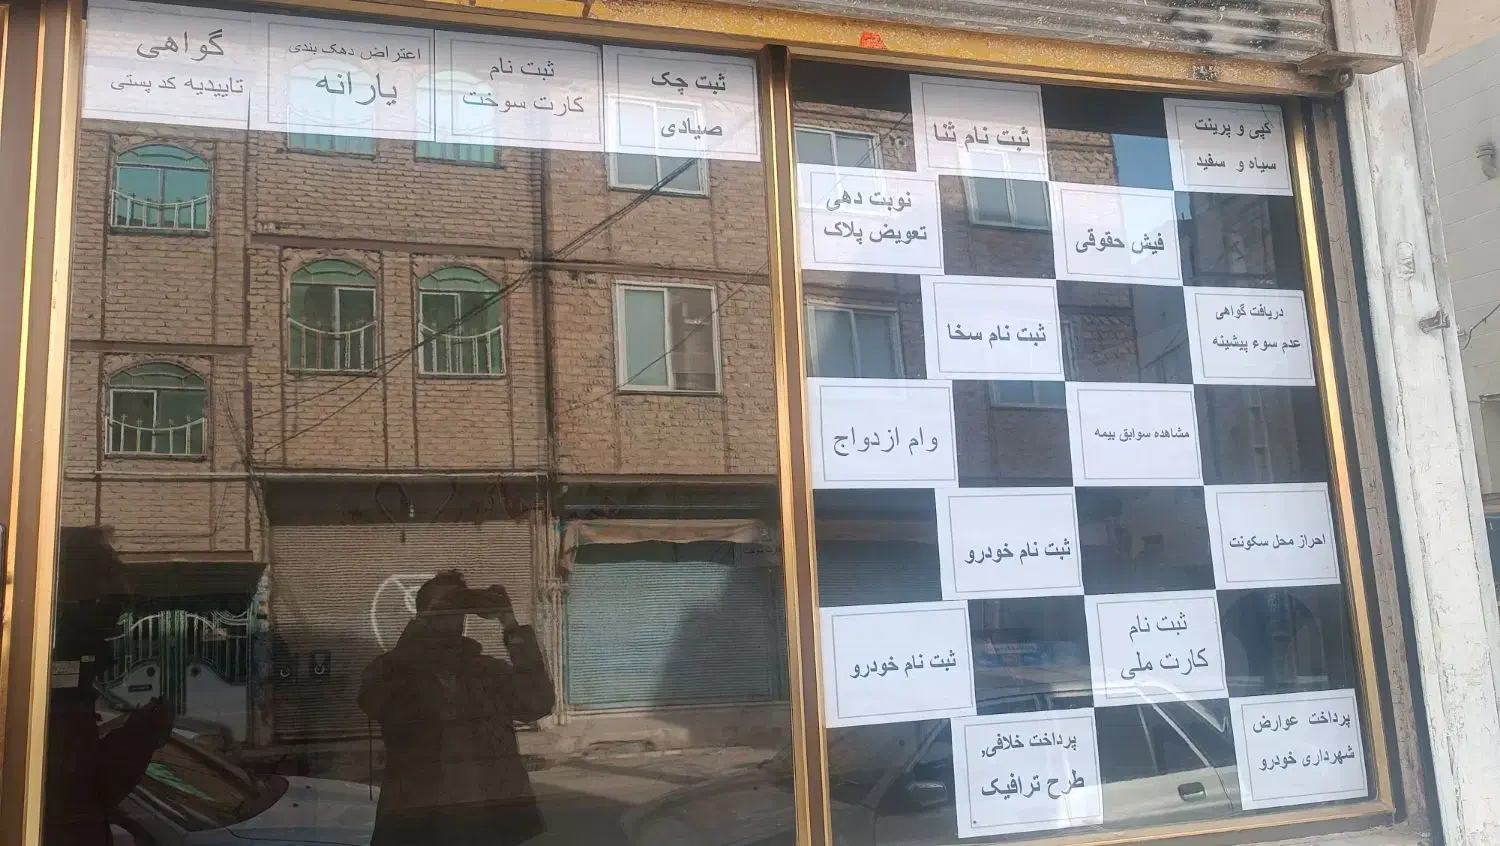 گواهی
تاییدیه کد پستی
اعتراض دهک بندی
یارانه
ثبت نام
کارت سوخت
ثبت چک
صیادی
ثبت نام ثنا
کپی و پرینت
سیاه و سفید
نوبت دهی
تعویض پلاک
فیش حقوقی
ثبت نام سخا
دریافت گواهی
عدم سوء پیشینه
وام ازدواج
مشاهده سوابق بیمه
ثبت نام خودرو
احراز محل سکونت
ثبت نام خودرو
ثبت نام
کارت ملی
پرداخت خلافی,
طرح ترافیک
پرداخت عوارض
شهرداری خودرو